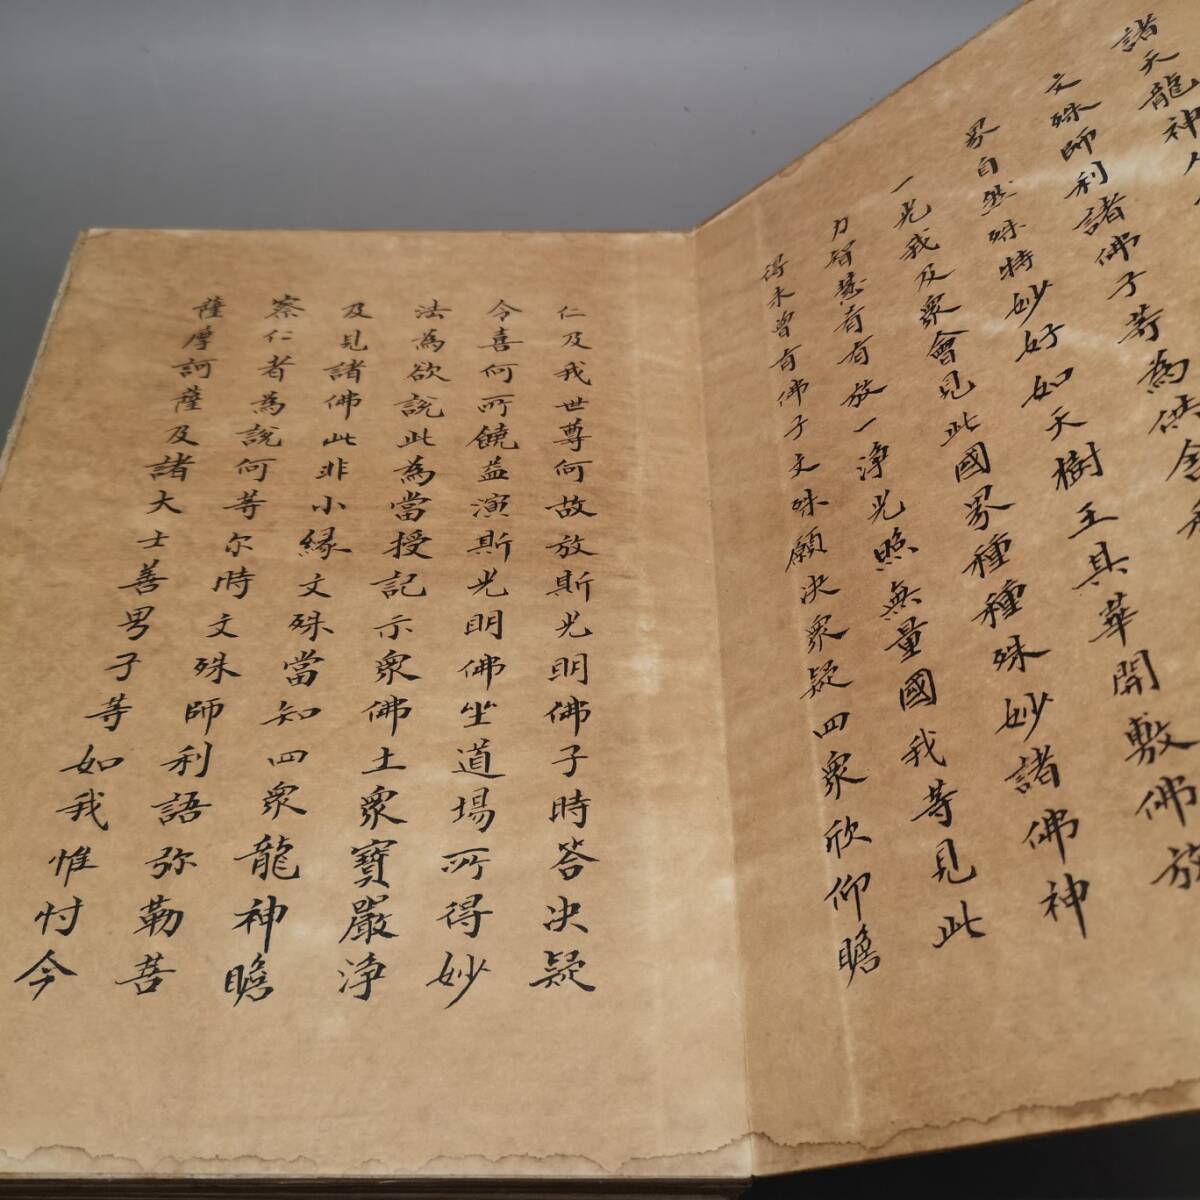 諸天龍神
文殊師利諸佛子等為供舍
界自然殊特妙好如天樹王其華開敷佛放
一光我及眾會見此國界種種殊妙諸佛神
力智慧希有放一淨光照無量國我等見此
得未曾有佛子文殊願决眾疑四眾欣仰瞻
仁及我世尊何故放斯光明佛子時答决疑
令喜何所饒益演斯光明佛坐道場所得妙
法為欲說此為當授記示眾佛土眾寶嚴淨
及見諸佛此非小緣文殊當知四眾龍神瞻
察仁者為說何等尔時文殊師利語弥勒菩
薩摩訶薩及諸大士善男子等如我惟忖今